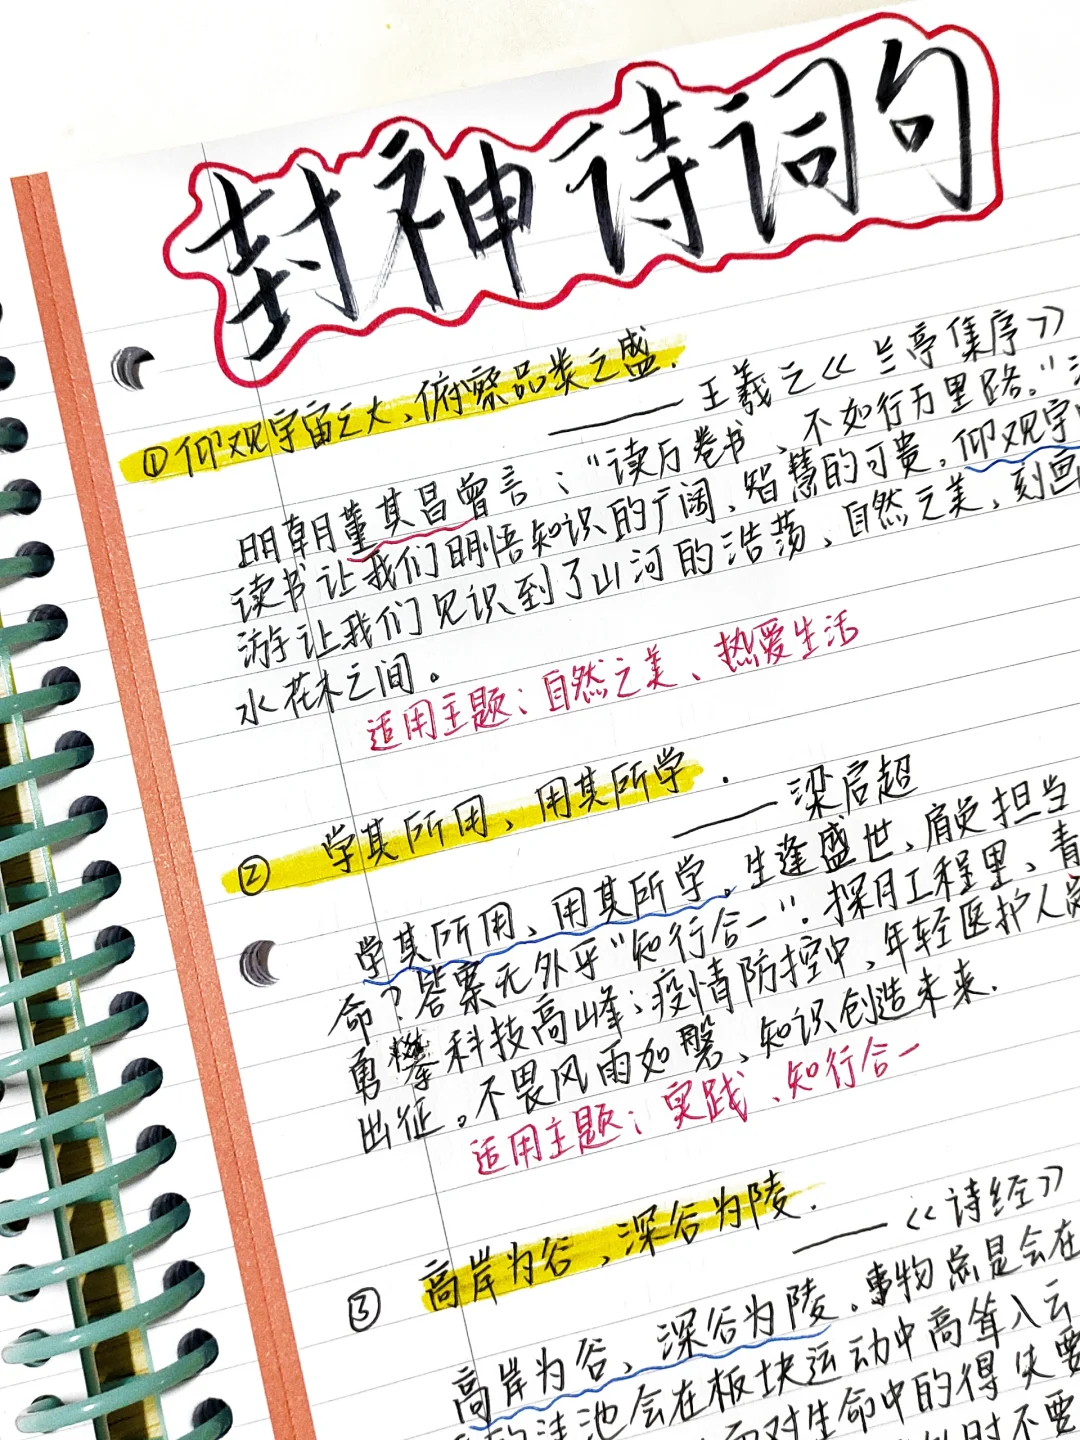 封神诗词句
①仰观宇宙之大、俯察品类之盛.
——王羲之《兰亭集序》
明朝董其昌曾言："读万卷书、不如行万里路。"
读书让我们明悟知识的广阔、智慧的可贵,仰观宇
游让我们见识到了山河的浩荡、自然之美,刻画
水花木之间。
适用主题:自然之美、热爱生活
② 学其所用、用其所学.
——梁启超
学其所用、用其所学。生逢盛世、肩负担当
命?答案无外乎"知行合一".探月工程里、青
勇攀科技高峰;疫情防控中、年轻医护人员
出征。不畏风雨如磐、知识创造未来.
适用主题:实践、知行合一
③ 高岸为谷、深谷为陵.
——《诗经》
高岸为谷、深谷为陵.事物总是会在
洼池会在板块运动中高耸入云
面对生命中的得失要
时不要